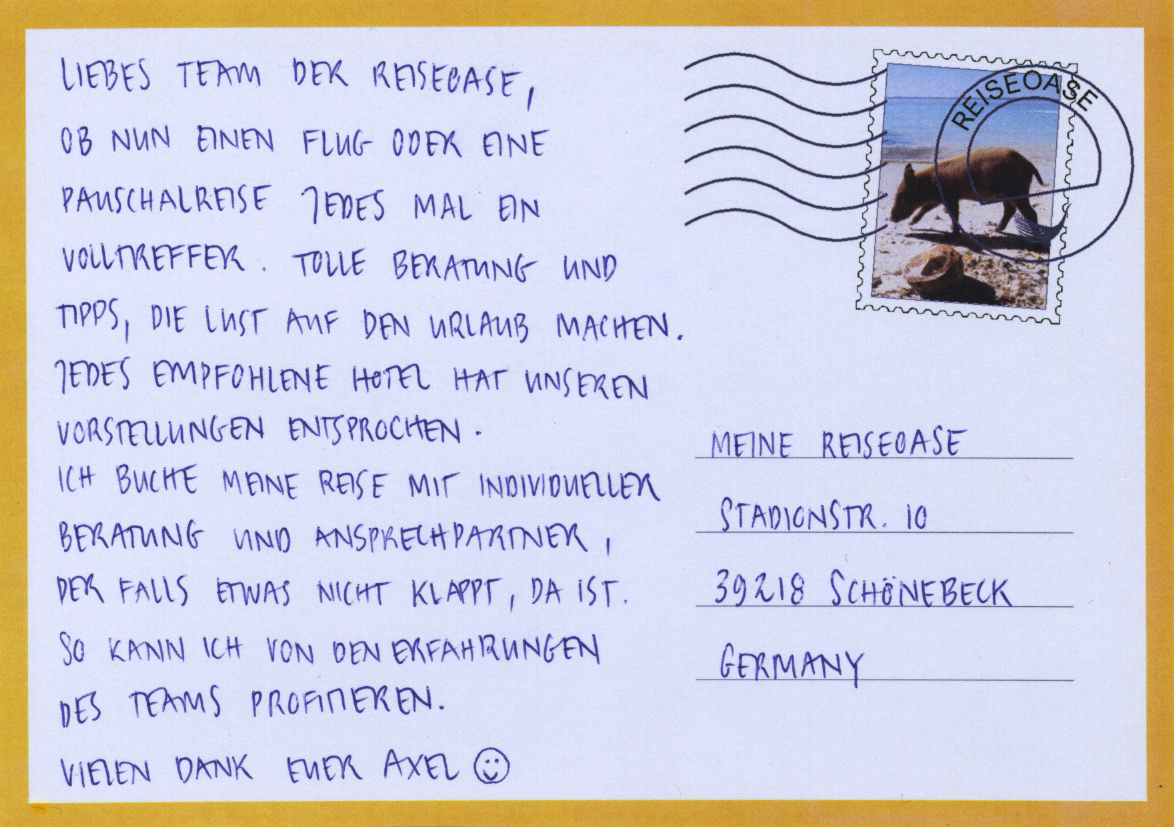 LIEBES TEAM DER REISEOASE,
OB NUN EINEN FLUG ODER EINE
PAUSCHALREISE JEDES MAL EIN
VOLLTREFFER. TOLLE BERATUNG UND
TIPPS, DIE LUST AUF DEN URLAUB MACHEN.
JEDES EMPFOHLENE HOTEL HAT UNSEREN
VORSTELLUNGEN ENTSPROCHEN.
ICH BUCHE MEINE REISE MIT INDIVIDUELLER
BERATUNG UND ANSPRECHPARTNER,
DER FALLS ETWAS NICHT KLAPPT, DA IST.
SO KANN ICH VON DEN ERFAHRUNGEN
DES TEAMS PROFITIEREN.
VIELEN DANK EUER AXEL ☺
REISEOASE
MEINE REISEOASE
STADIONSTR. 10
39218 SCHÖNEBECK
GERMANY